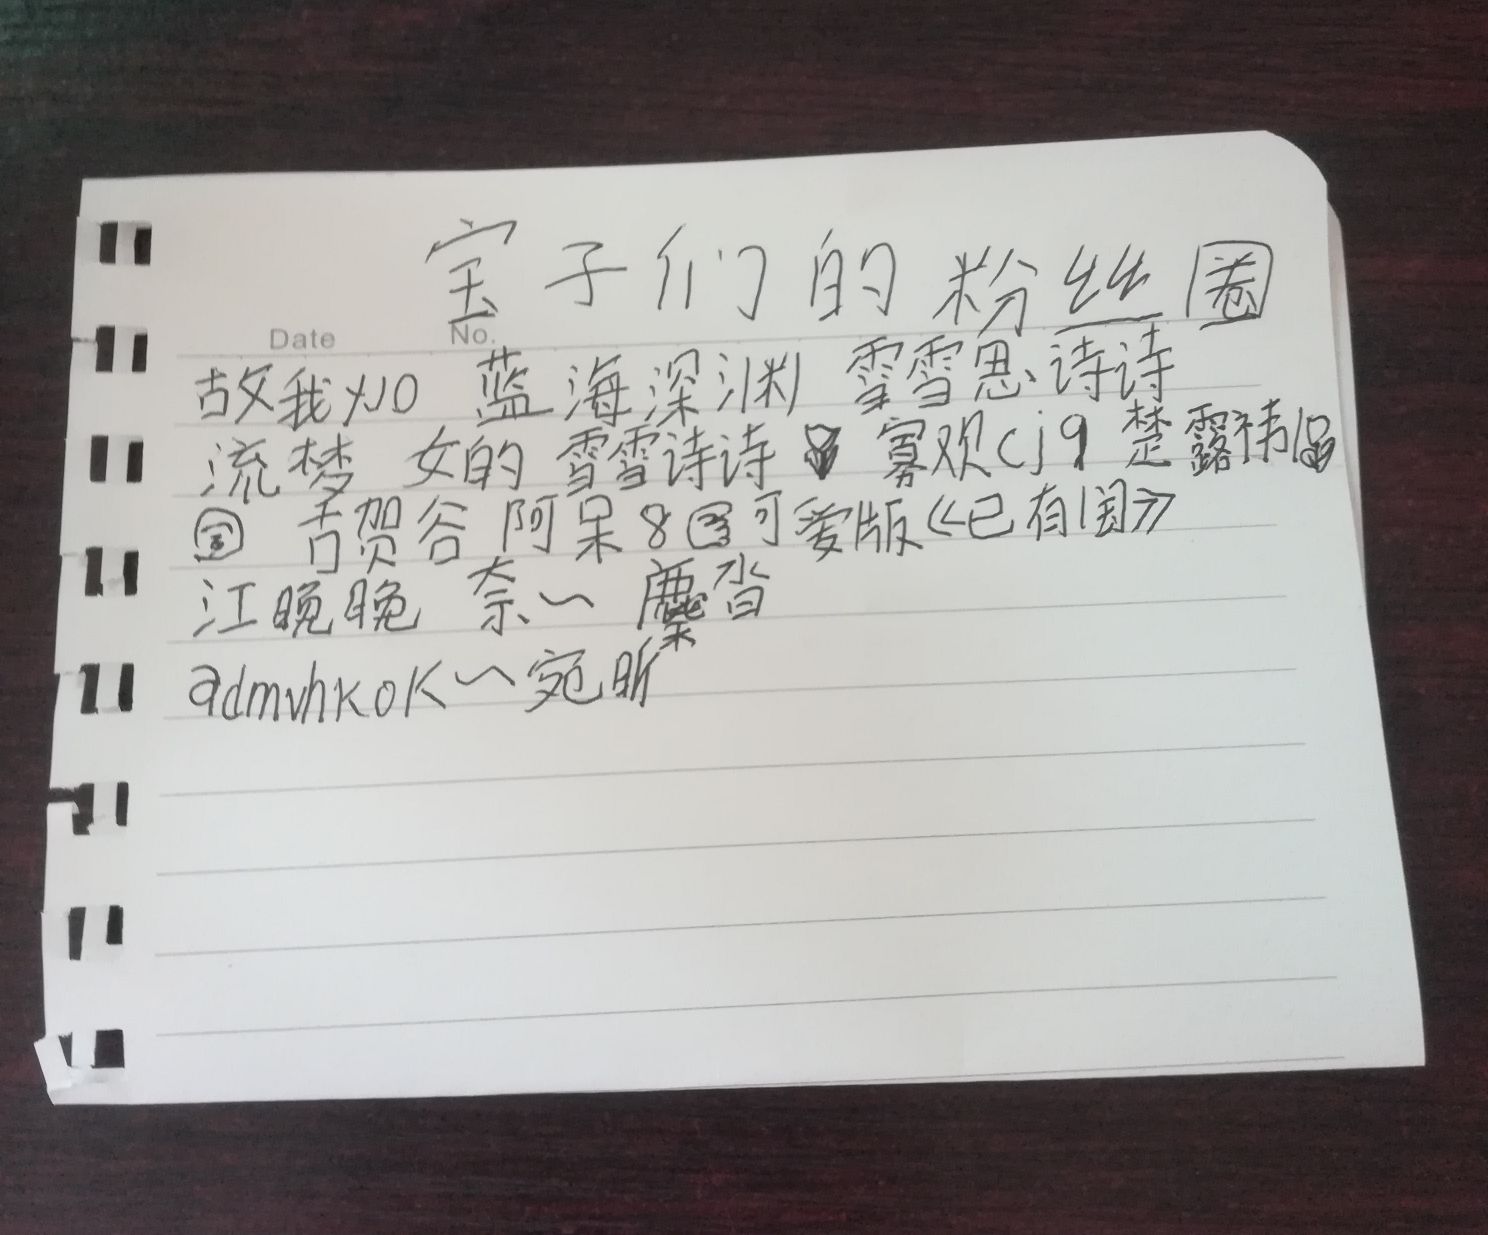 宝子们的粉丝圈
Date No.
故我如 蓝海深渊 雪雪思诗诗
流梦 女的 雪雪诗诗 寡欢cj9 楚露祎
吉贺谷 阿呆8 可爱版《已有闺》
江晚晚 奈~ 麋沓
admvhkok~宛昕